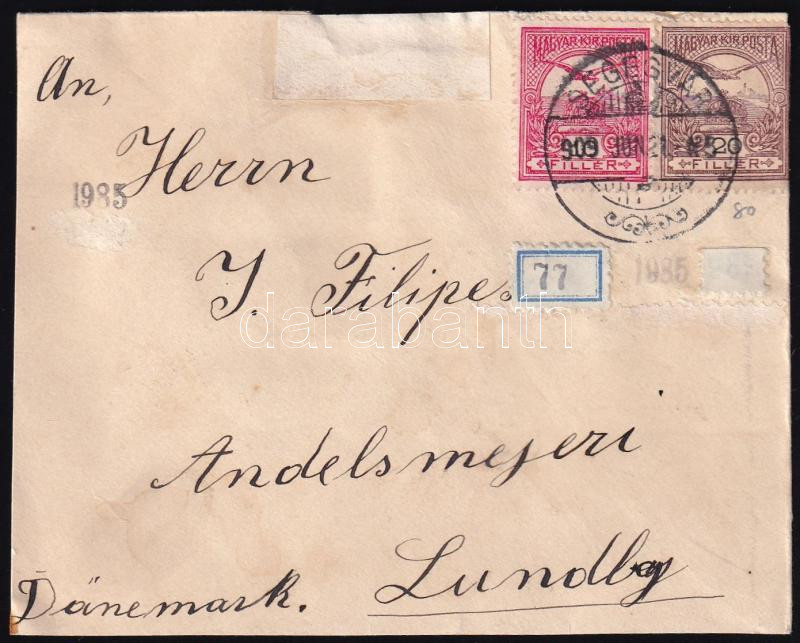 An,
Herrn
J. Filipe.
Andelsmejeri
Lundby
Dänemark.
1985
MAGYAR KIR. POSTA
FILLÉR
MAGYAR KIR. POSTA
20
FILLÉR
SEGESVÁR
909 JUN 21
80
77
1985
darabanth